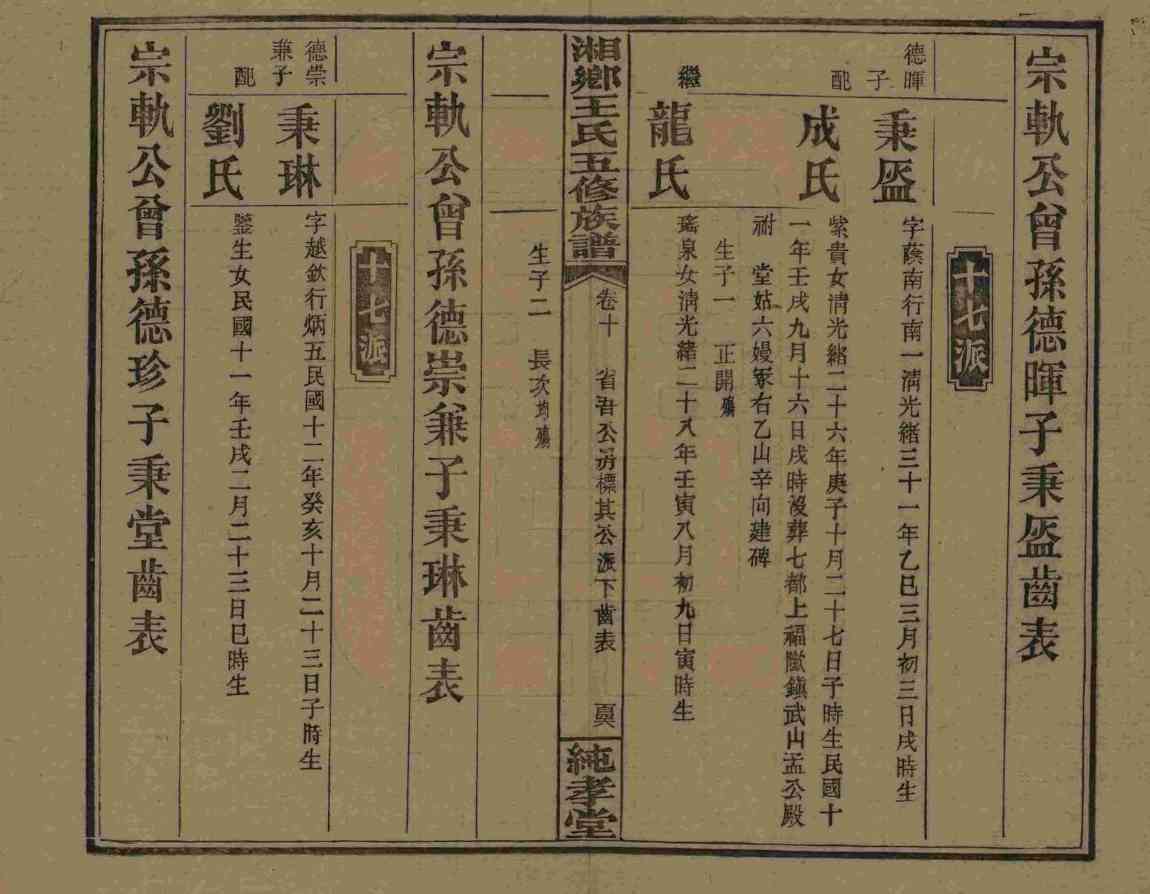 宗軌公曾孫德暉子秉盈齒表
十七派
德暉子
秉盈
字蔭南行南一清光緒三十一年乙巳三月初三日戌時生
配
成氏
紫貴女清光緒二十六年庚子十月二十七日子時生民國十
一年壬戌九月十六日戌時沒葬七都上福歇鎮武山孟公殿
祔 堂姑六嫚冢右乙山辛向建碑
生子一 正開殤
繼
龍氏
瑤泉女清光緒二十八年壬寅八月初九日寅時生
湘鄉王氏五修族譜
卷十 省吾公房標其公派下齒表 頁
純孝堂
生子二 長次均殤
宗軌公曾孫德崇兼子秉琳齒表
十七派
德崇兼子
秉琳
字越欽行炳五民國十二年癸亥十月二十三日子時生
配
劉氏
鑒生女民國十一年壬戌二月二十三日巳時生
宗軌公曾孫德珍子秉堂齒表